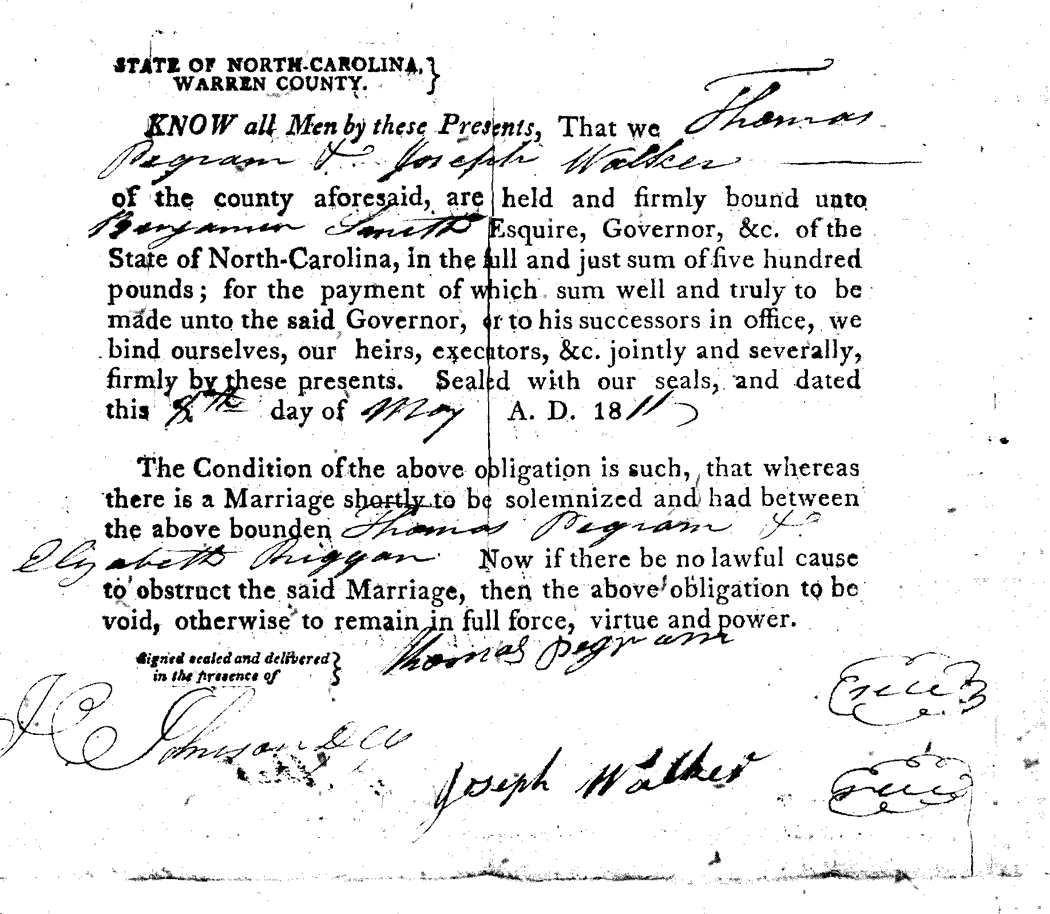 STATE OF NORTH-CAROLINA,
WARREN COUNTY.
KNOW all Men by these Presents, That we Thomas
Pegram & Joseph Walker
of the county aforesaid, are held and firmly bound unto
Benjamin Smith Esquire, Governor, &c. of the
State of North-Carolina, in the full and just sum of five hundred
pounds; for the payment of which sum well and truly to be
made unto the said Governor, or to his successors in office, we
bind ourselves, our heirs, executors, &c. jointly and severally,
firmly by these presents. Sealed with our seals, and dated
this 8th day of May A. D. 1811
The Condition of the above obligation is such, that whereas
there is a Marriage shortly to be solemnized and had between
the above bounden Thomas Pegram &
Elizabeth Riggan Now if there be no lawful cause
to obstruct the said Marriage, then the above obligation to be
void, otherwise to remain in full force, virtue and power.
Signed sealed and delivered
in the presence of
Thomas Pegram
J C Johnson D C
Joseph Walker